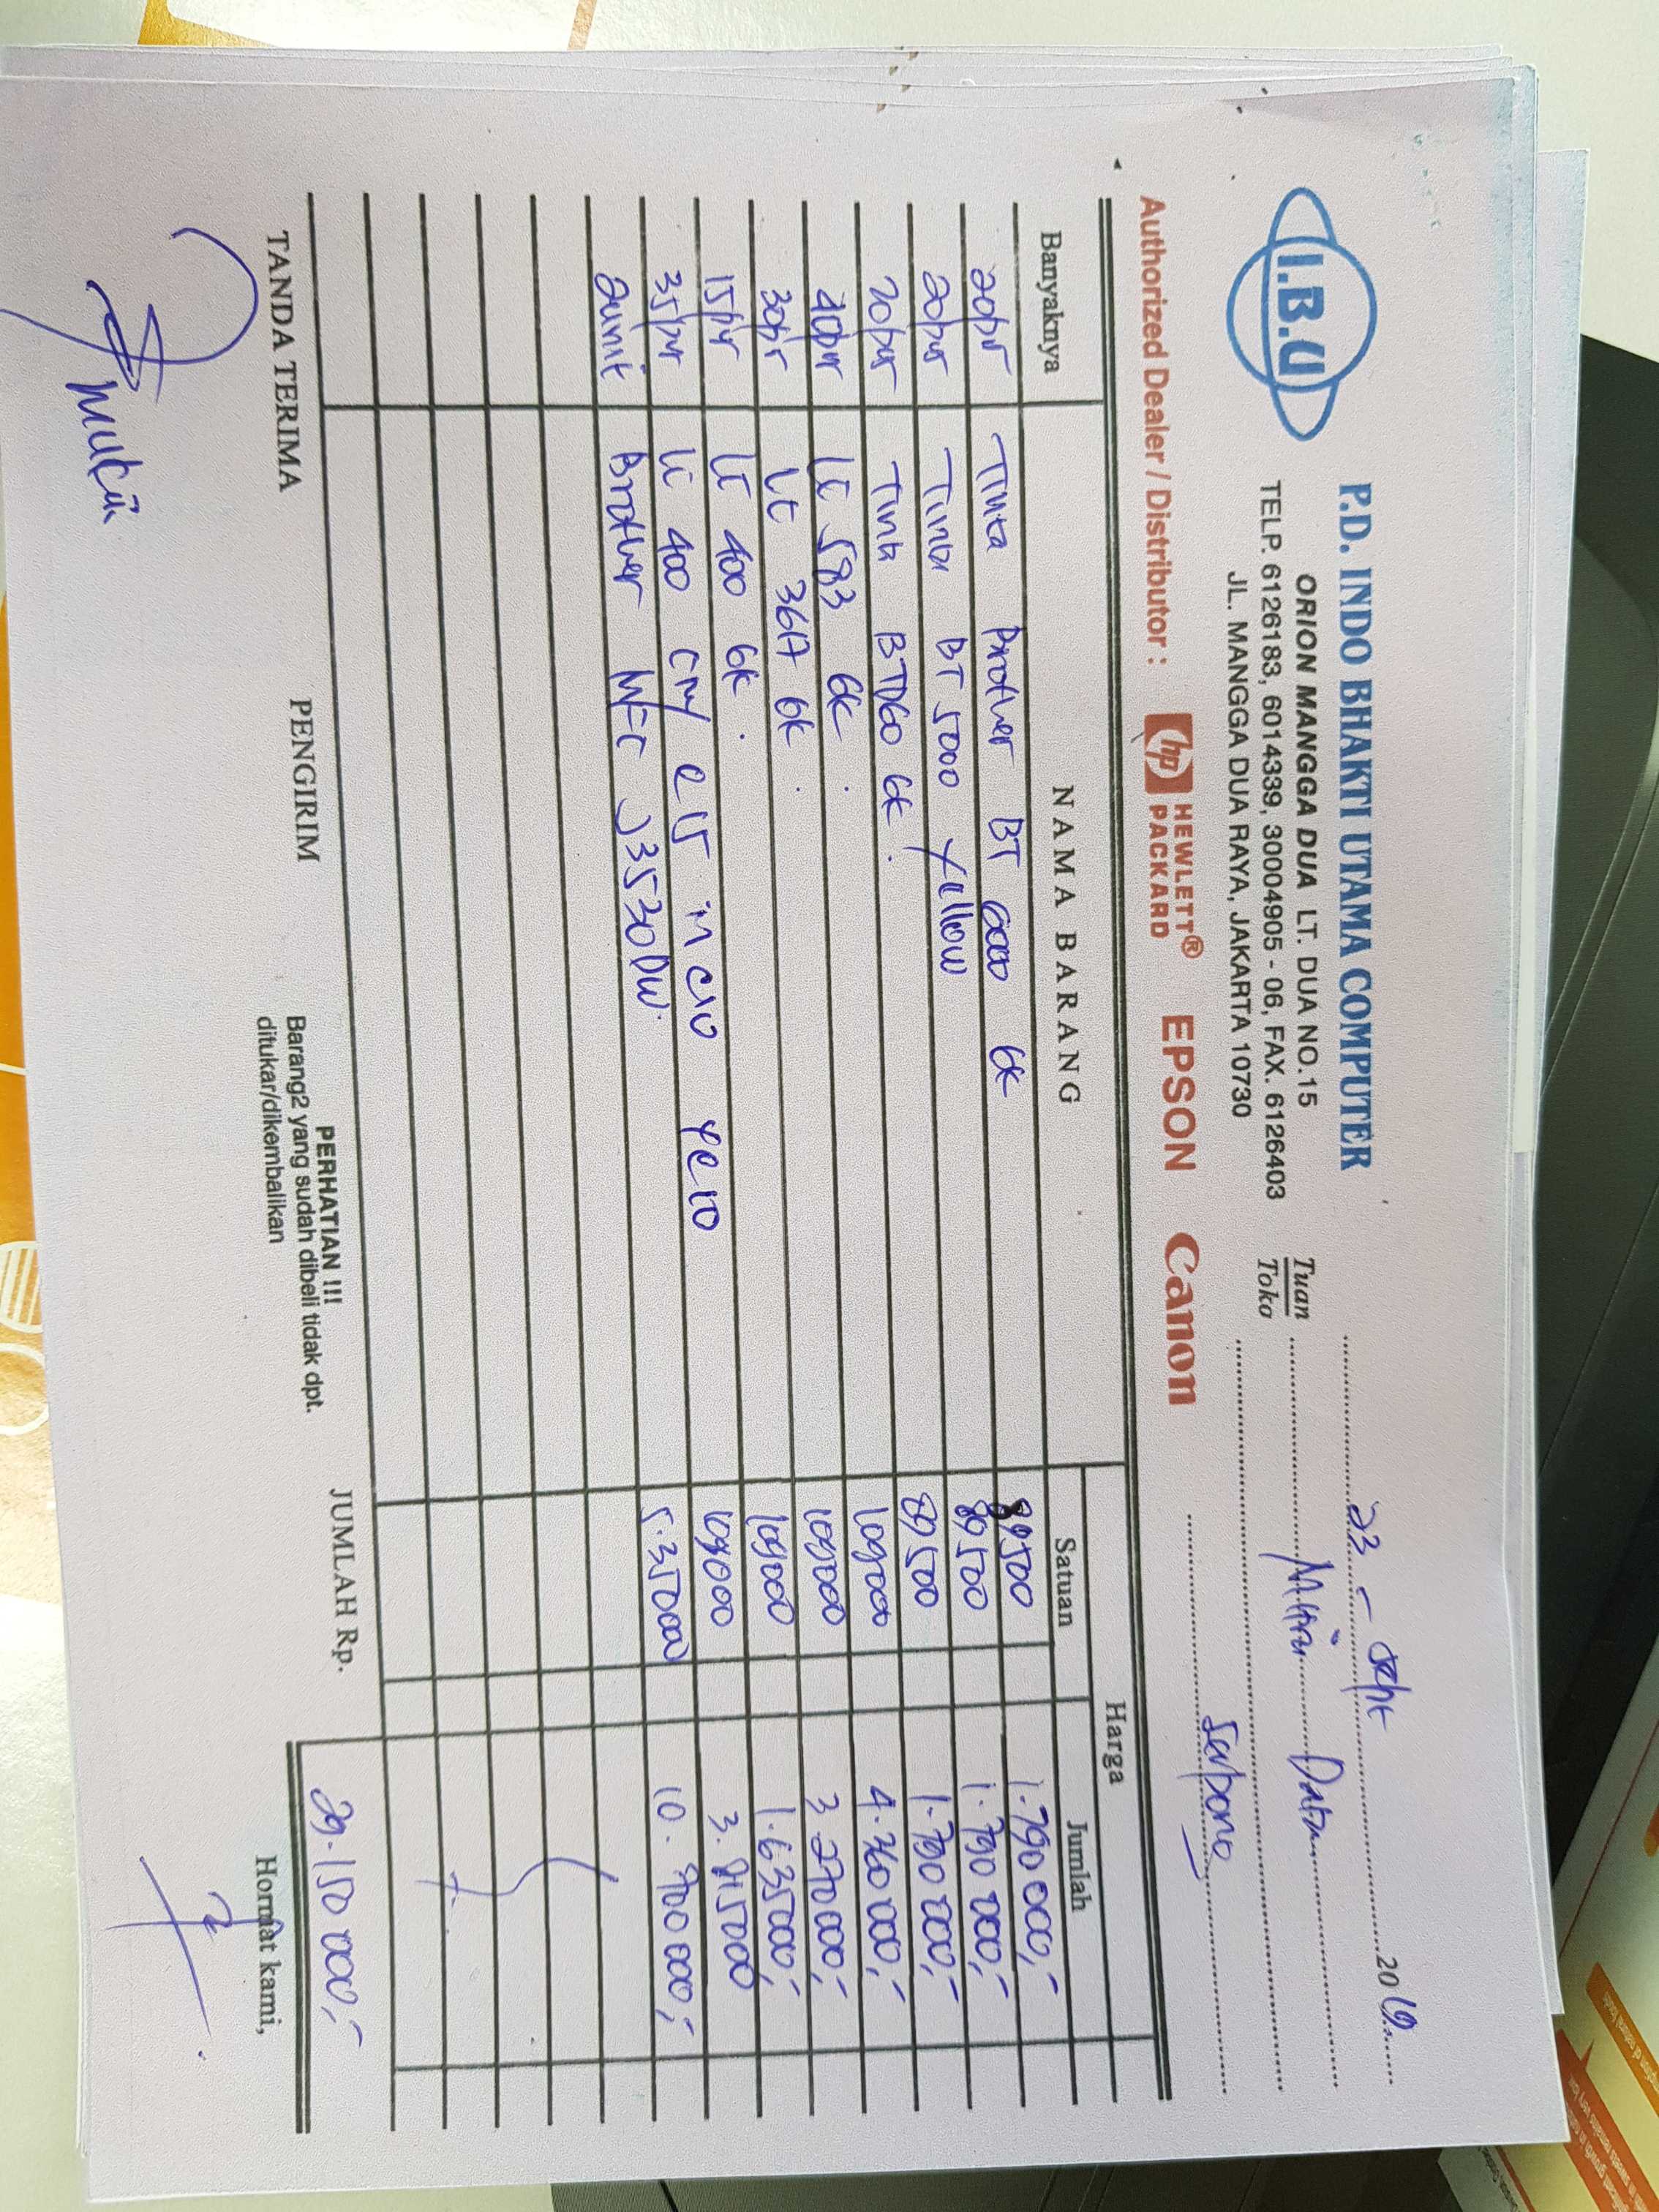 I.B.U
P.D. INDO BHAKTI UTAMA COMPUTER
ORION MANGGA DUA LT. DUA NO.15
TELP. 6126183, 6014339, 30004905 - 06, FAX. 6126403
JL. MANGGA DUA RAYA, JAKARTA 10730
23 - Sept 2019
Tuan
Toko
Serpong
Authorized Dealer / Distributor : hp HEWLETT® PACKARD EPSON Canon
Banyaknya NAMA BARANG Harga
Satuan Jumlah
20pcs Tinta Brother BT 6000 BK 89500 1.790 000,-
20pcs Tinta BT 5000 Yellow 89500 1.790 000,-
20pcs Tinta BTD60 BK 89500 1.790 000,-
40pcs LC 583 BK 109000 4.360 000,-
30pcs LC 3617 BK 109000 3.270 000,-
15pcs LC 400 BK 109000 1.635 000,-
35pcs LC 400 cmy c15 m c10 ye 10 109000 3.815000
2unit Brother MFC J3530DW 5.35000
JUMLAH Rp. 29.150 000,-
TANDA TERIMA PENGIRIM
PERHATIAN !!!
Barang2 yang sudah dibeli tidak dpt.
ditukar/dikembalikan
Hormat kami,